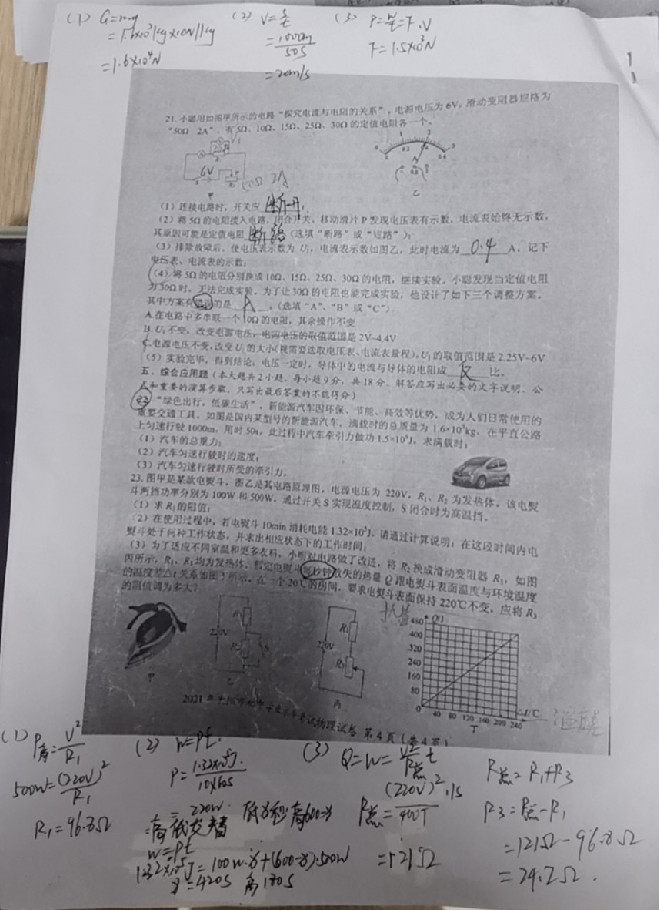 (1) G=mg
=1.6×10³kg×10N/kg
=1.6×10⁴N
(2) V=s/t
=1000m/50s
=20m/s
(3) P=W/t=F·V
F=1.5×10³N
21.小聪用如图甲所示的电路“探究电流与电阻的关系”，电源电压为6V，滑动变阻器规格为
“50Ω 2A”，有5Ω、10Ω、15Ω、25Ω、30Ω的定值电阻各一个。
(1)连接电路时，开关应断开；
(2)将5Ω的电阻接入电路，闭合开关，移动滑片P发现电压表有示数，电流表始终无示数，
其原因可能是定值电阻断路(选填“断路”或“短路”)；
(3)排除故障后，使电压表示数为U₁，电流表示数如图乙，此时电流为0.4A，记下
电压表、电流表的示数；
(4)将5Ω的电阻分别换成10Ω、15Ω、25Ω、30Ω的电阻，继续实验，小聪发现当定值电阻
为30Ω时，无法完成实验，为了让30Ω的电阻也能完成实验，他设计了如下三个调整方案，
其中方案有错误的是，(选填“A”、“B”或“C”)
A.在电路中多串联一个10Ω的电阻，其余操作不变
B.U₁不变，改变电源电压，电源电压的取值范围是2V~4.4V
C.电源电压不变，改变U₁的大小(视需要选取电压表、电流表量程)，U₁的取值范围是2.25V~6V
(5)实验完毕，得到结论：电压一定时，导体中的电流与导体的电阻成反比。
五、综合应用题(本大题共2小题，每小题9分，共18分，解答应写出必要的文字说明、公
式和重要的演算步骤，只写出最后答案的不能得分)
22.“绿色出行，低碳生活”，新能源汽车因环保、节能、高效等优势，成为人们日常使用的
重要交通工具，如图是国内某型号的新能源汽车，满载时的总质量为1.6×10³kg，在平直公路
上匀速行驶1000m，用时50s，此过程中汽车牵引力做功1.5×10⁶J，求满载时：
(1)汽车的总重力；
(2)汽车匀速行驶时的速度；
(3)汽车匀速行驶时所受的牵引力。
23.图甲是某款电熨斗，图乙是其电路原理图，电源电压为220V，R₁、R₂为发热体，该电熨
斗两挡功率分别为100W和500W，通过开关S实现温度控制，S闭合时为高温挡。
(1)求R₁的阻值；
(2)在使用过程中，若电熨斗10min消耗电能1.32×10⁵J，请通过计算说明：在这段时间内电
熨斗处于何种工作状态，并求出相应状态下的工作时间；
(3)为了适应不同室温和更多衣料，小明对电路做了改进，将R₂换成滑动变阻器R₃，如图
丙所示，R₁、R₃均为发热体，假定电熨斗每秒钟散失的热量Q跟电熨斗表面温度与环境温度
的温度差Δt关系如图丁所示，在一个20℃的房间，要求电熨斗表面保持220℃不变，应将R₃
的阻值调为多大？
480
400
320
240
160
80
0 40 80 120 160 200 240 280
第4页(共4页)
(1) P高=V²/R₁
500W=(220V)²/R₁
R₁=96.8Ω
(2) W=Pt.
P=1.32×10⁵J/10×60s
=220W
高低交替
W=Pt
1.32×10⁵J=100W·x+(600-x)·500W
x=420s 高180s
(3) Q=W=U²/R总 t
R总=(220V)²·1s/400J
=121Ω
R总=R₁+R₃
R₃=R总-R₁
=121Ω-96.8Ω
=24.2Ω.